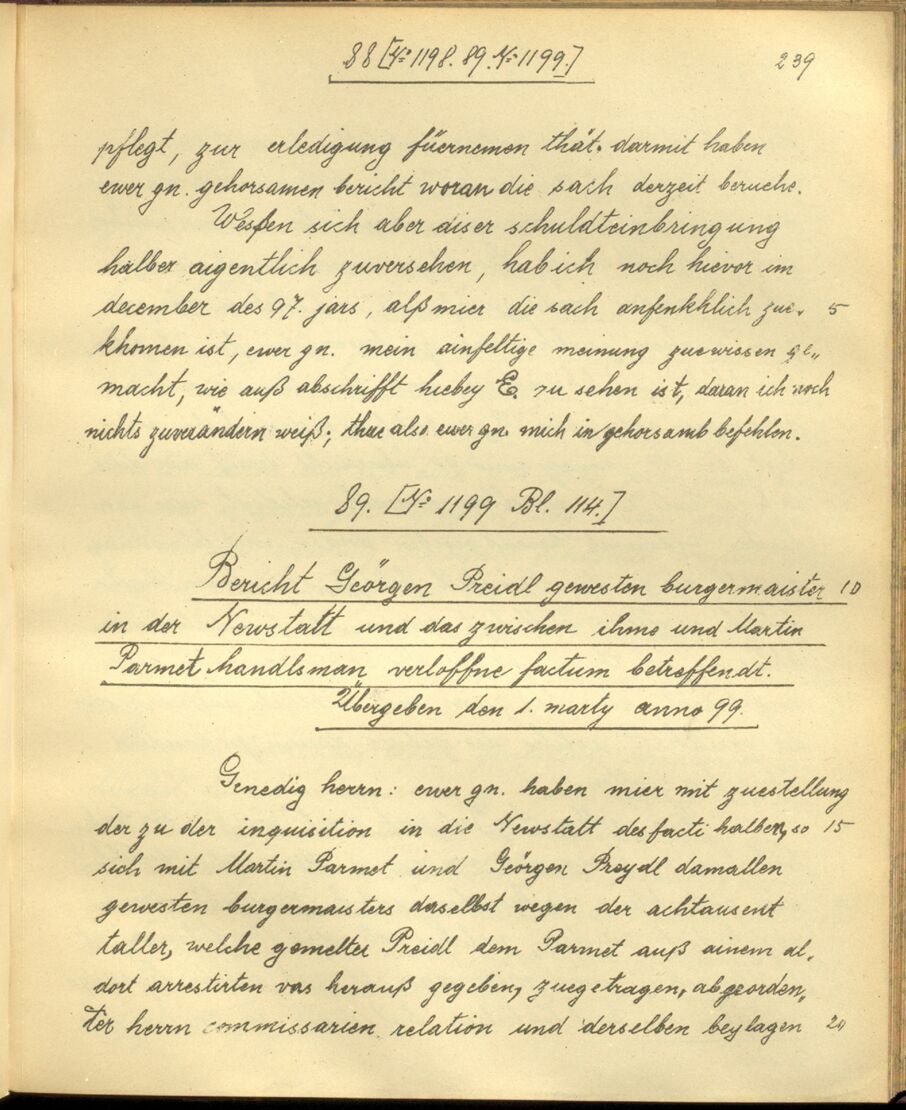 88 [No 1198. 89. No 1199.]
239
pflegt, zur erledigung füernemen thät. darmit haben
ewer gn. gehorsamen bericht woran die sach derzeit beruehe.
Weßen sich aber diser schuldteinbringung
halber aigentlich zuversehen, hab ich noch hievor im
december des 97. jars, alß mier die sach anfenkhlich zue- 5
khomen ist, ewer gn. mein ainfeltige meinung zuewissen ge„
macht, wie auß abschrifft hiebey E zu sehen ist, daran ich noch
nichts zuverändern weiß; thue also ewer gn. mich in gehorsamb befehlen.
89. [No 1199 Bl. 114.]
Bericht Geörgen Preidl gewesten burgermaister 10
in der Newstatt und das zwischen ihme und Martin
Parmet handlsman verloffne factum betreffendt.
Übergeben den 1. marty anno 99.
Genedig herrn: ewer gn. haben mier mit zuestellung
der zu der inquisition in die Newstatt des facti halber, so 15
sich mit Martin Parmet und Geörgen Preydl damallen
gewesten burgermaisters daselbst wegen der achtausent
taller, welche gemelter Preidl dem Parmet auß ainem al„
dort arrestirten vas herauß gegeben, zuegetragen, abgeorden„
ter herrn commissarien relation und derselben beylagen 20